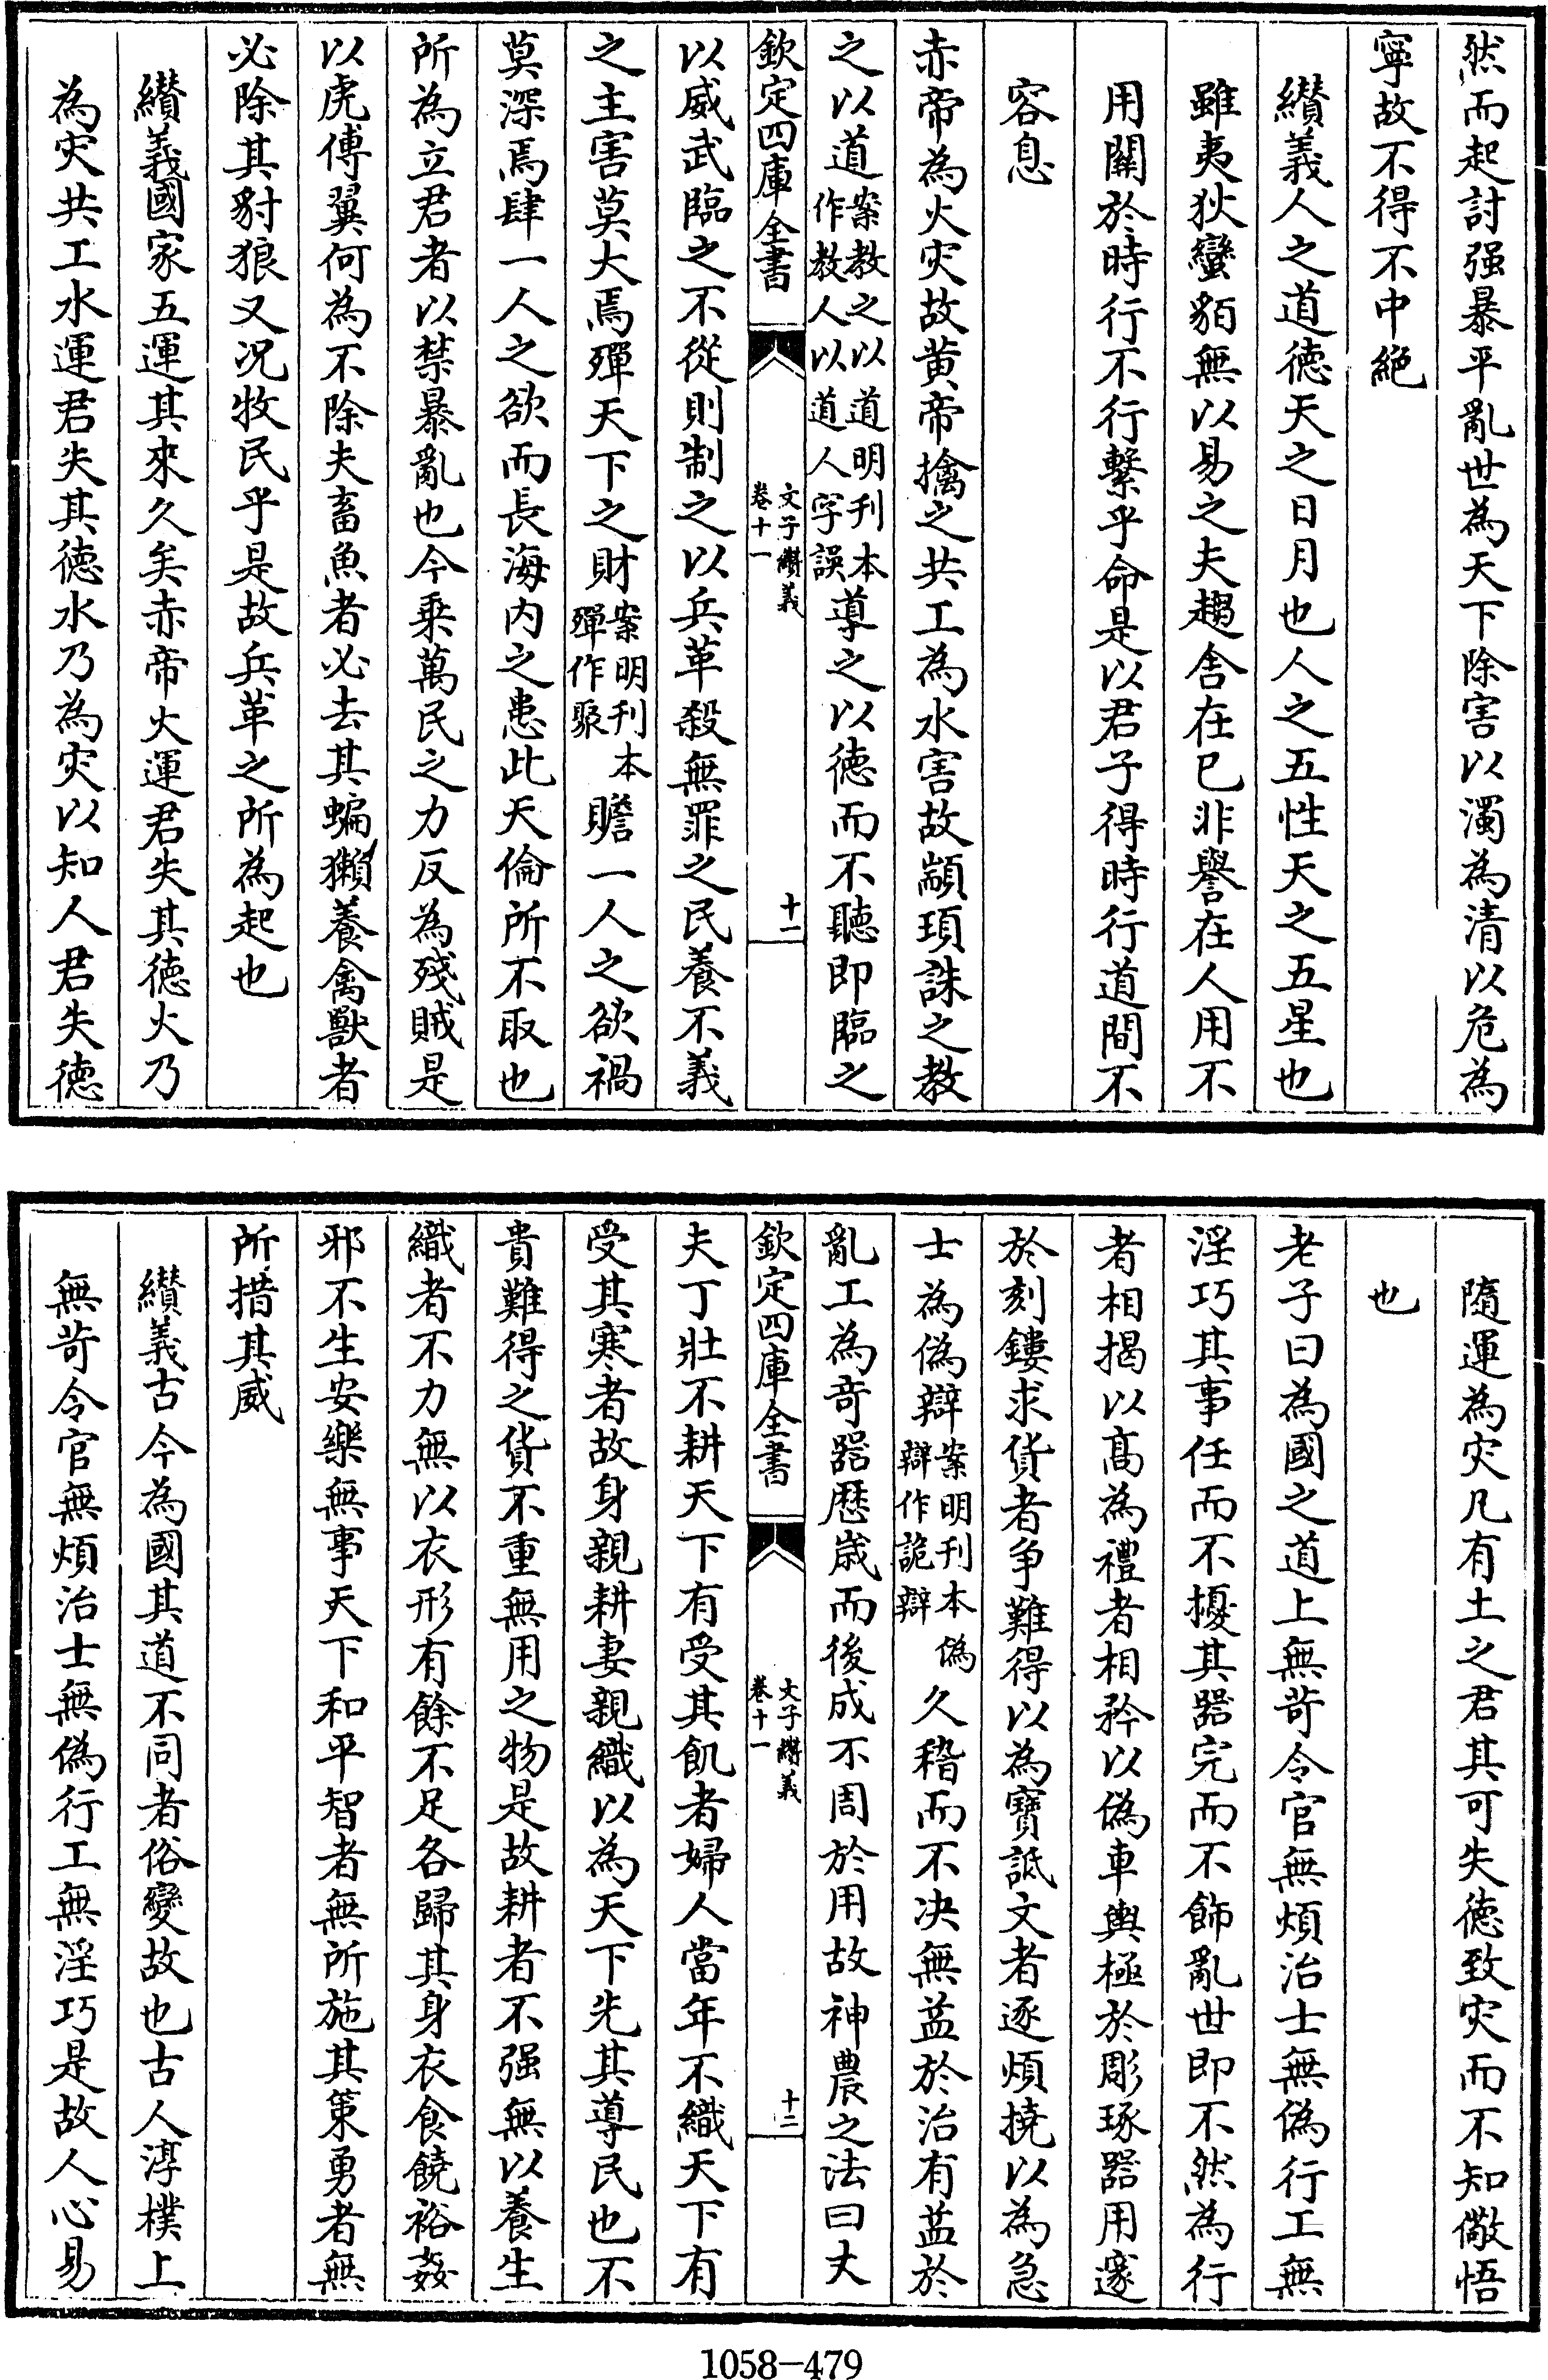 然而起討强暴平亂世為天下除害以濁為清以危為
寧故不得不中絶
纘義人之道徳天之日月也人之五性天之五星也
雖夷狄蠻貊無以易之夫趨舎在已非譽在人用不
用闗於時行不行繫乎命是以君子得時行道間不
容息
赤帝為火灾故黄帝擒之共工為水害故顓頊誅之教
之以道案教之以道明刊本作教人以道人字誤導之以徳而不聽即臨之
欽定四庫全書
文子纘義
卷十一
十二
以威武臨之不從則制之以兵革殺無罪之民養不義
之主害莫大焉殫天下之財案明刊本殫作聚贍一人之欲禍
莫深焉肆一人之欲而長海内之患此天倫所不取也
所為立君者以禁暴亂也今乗萬民之力反為殘賊是
以虎傅翼何為不除夫畜魚者必去其蝙獺養禽獸者
必除其豺狼又况牧民乎是故兵革之所為起也
纘義國家五運其來久矣赤帝火運君失其徳火乃
為灾共工水運君失其徳水乃為灾以知人君失徳
隨運為灾凡有土之君其可失徳致灾而不知儆悟
也
老子曰為國之道上無苛令官無煩治士無偽行工無
淫巧其事任而不擾其器完而不飾亂世即不然為行
者相揭以髙為禮者相矜以偽車輿極於彫琢器用邃
於刻鏤求貨者争難得以為寶詆文者逐煩撓以為急
士為偽辯案明刊本偽辯作詭辯久稽而不决無益於治有益於
亂工為竒器歴歳而後成不周於用故神農之法曰丈
欽定四庫全書
文子纘義
卷十一
十二
夫丁壯不耕天下有受其飢者婦人當年不織天下有
受其寒者故身親耕妻親織以為天下先其導民也不
貴難得之貨不重無用之物是故耕者不强無以養生
織者不力無以衣形有餘不足各歸其身衣食饒裕姦
邪不生安樂無事天下和平智者無所施其策勇者無
所措其威
纘義古今為國其道不同者俗變故也古人淳樸上
無苛令官無煩治士無偽行工無淫巧是故人心易
1058-479